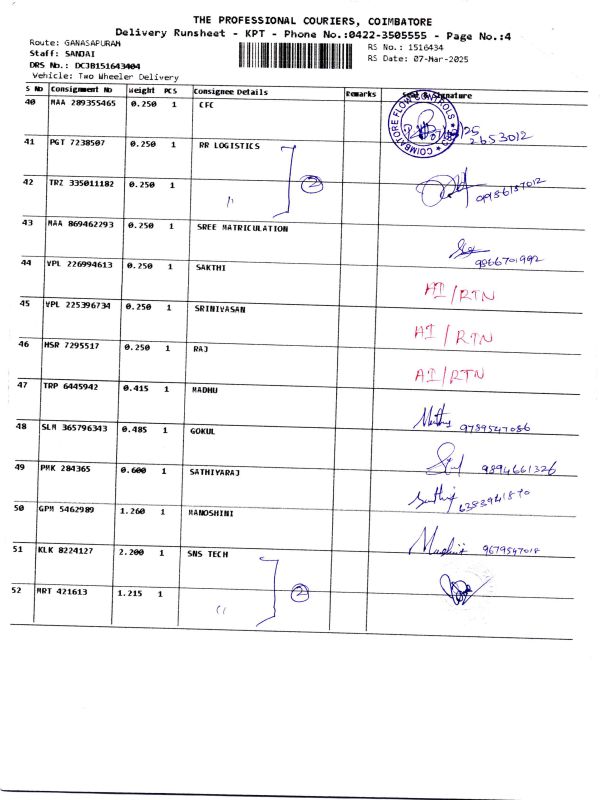 THE PROFESSIONAL COURIERS, COIMBATORE
Delivery Runsheet - KPT - Phone No.:0422-3505555 - Page No.:4
Route: GANASAPURAM
RS No.: 1516434
Staff: SANJAI
RS Date: 07-Mar-2025
DRS No.: DCJB151643404
Vehicle: Two Wheeler Delivery
S No Consignment No Weight PCS Consignee Details Remarks Seal & Signature
40 MAA 289355465 0.250 1 CFC
COIMBATORE FLOW CONTROLS
2653012
41 PGT 7238507 0.250 1 RR LOGISTICS
42 TRZ 335011182 0.250 1 " 2
9986187012
43 MAA 869462293 0.250 1 SREE MATRICULATION
9866701992
44 VPL 226994613 0.250 1 SAKTHI AI/RTN
45 VPL 225396734 0.250 1 SRINIVASAN AI/RTN
46 HSR 7295517 0.250 1 RAJ AI/RTN
47 TRP 6445942 0.415 1 MADHU 9789547086
48 SLM 365796343 0.485 1 GOKUL 9894661326
49 PMK 284365 0.600 1 SATHIYARAJ 6383941870
50 GPM 5462989 1.260 1 MANOSHINI 9679547014
51 KLK 8224127 2.200 1 SNS TECH
52 MRT 421613 1.215 1 " 2